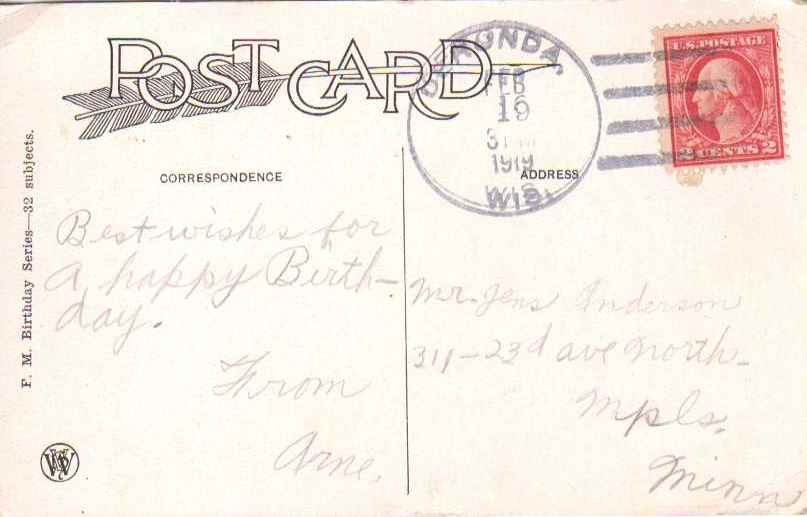 POST CARD
DERONDA,
FEB
19
3 PM
1919
WIS.
U.S. POSTAGE
2 CENTS 2
CORRESPONDENCE
ADDRESS
F. M. Birthday Series—32 subjects.
Best wishes for
a happy Birth-
day.
From
Arne.
Mr. Jens Anderson
311-23d ave north-
Mpls.
Minn